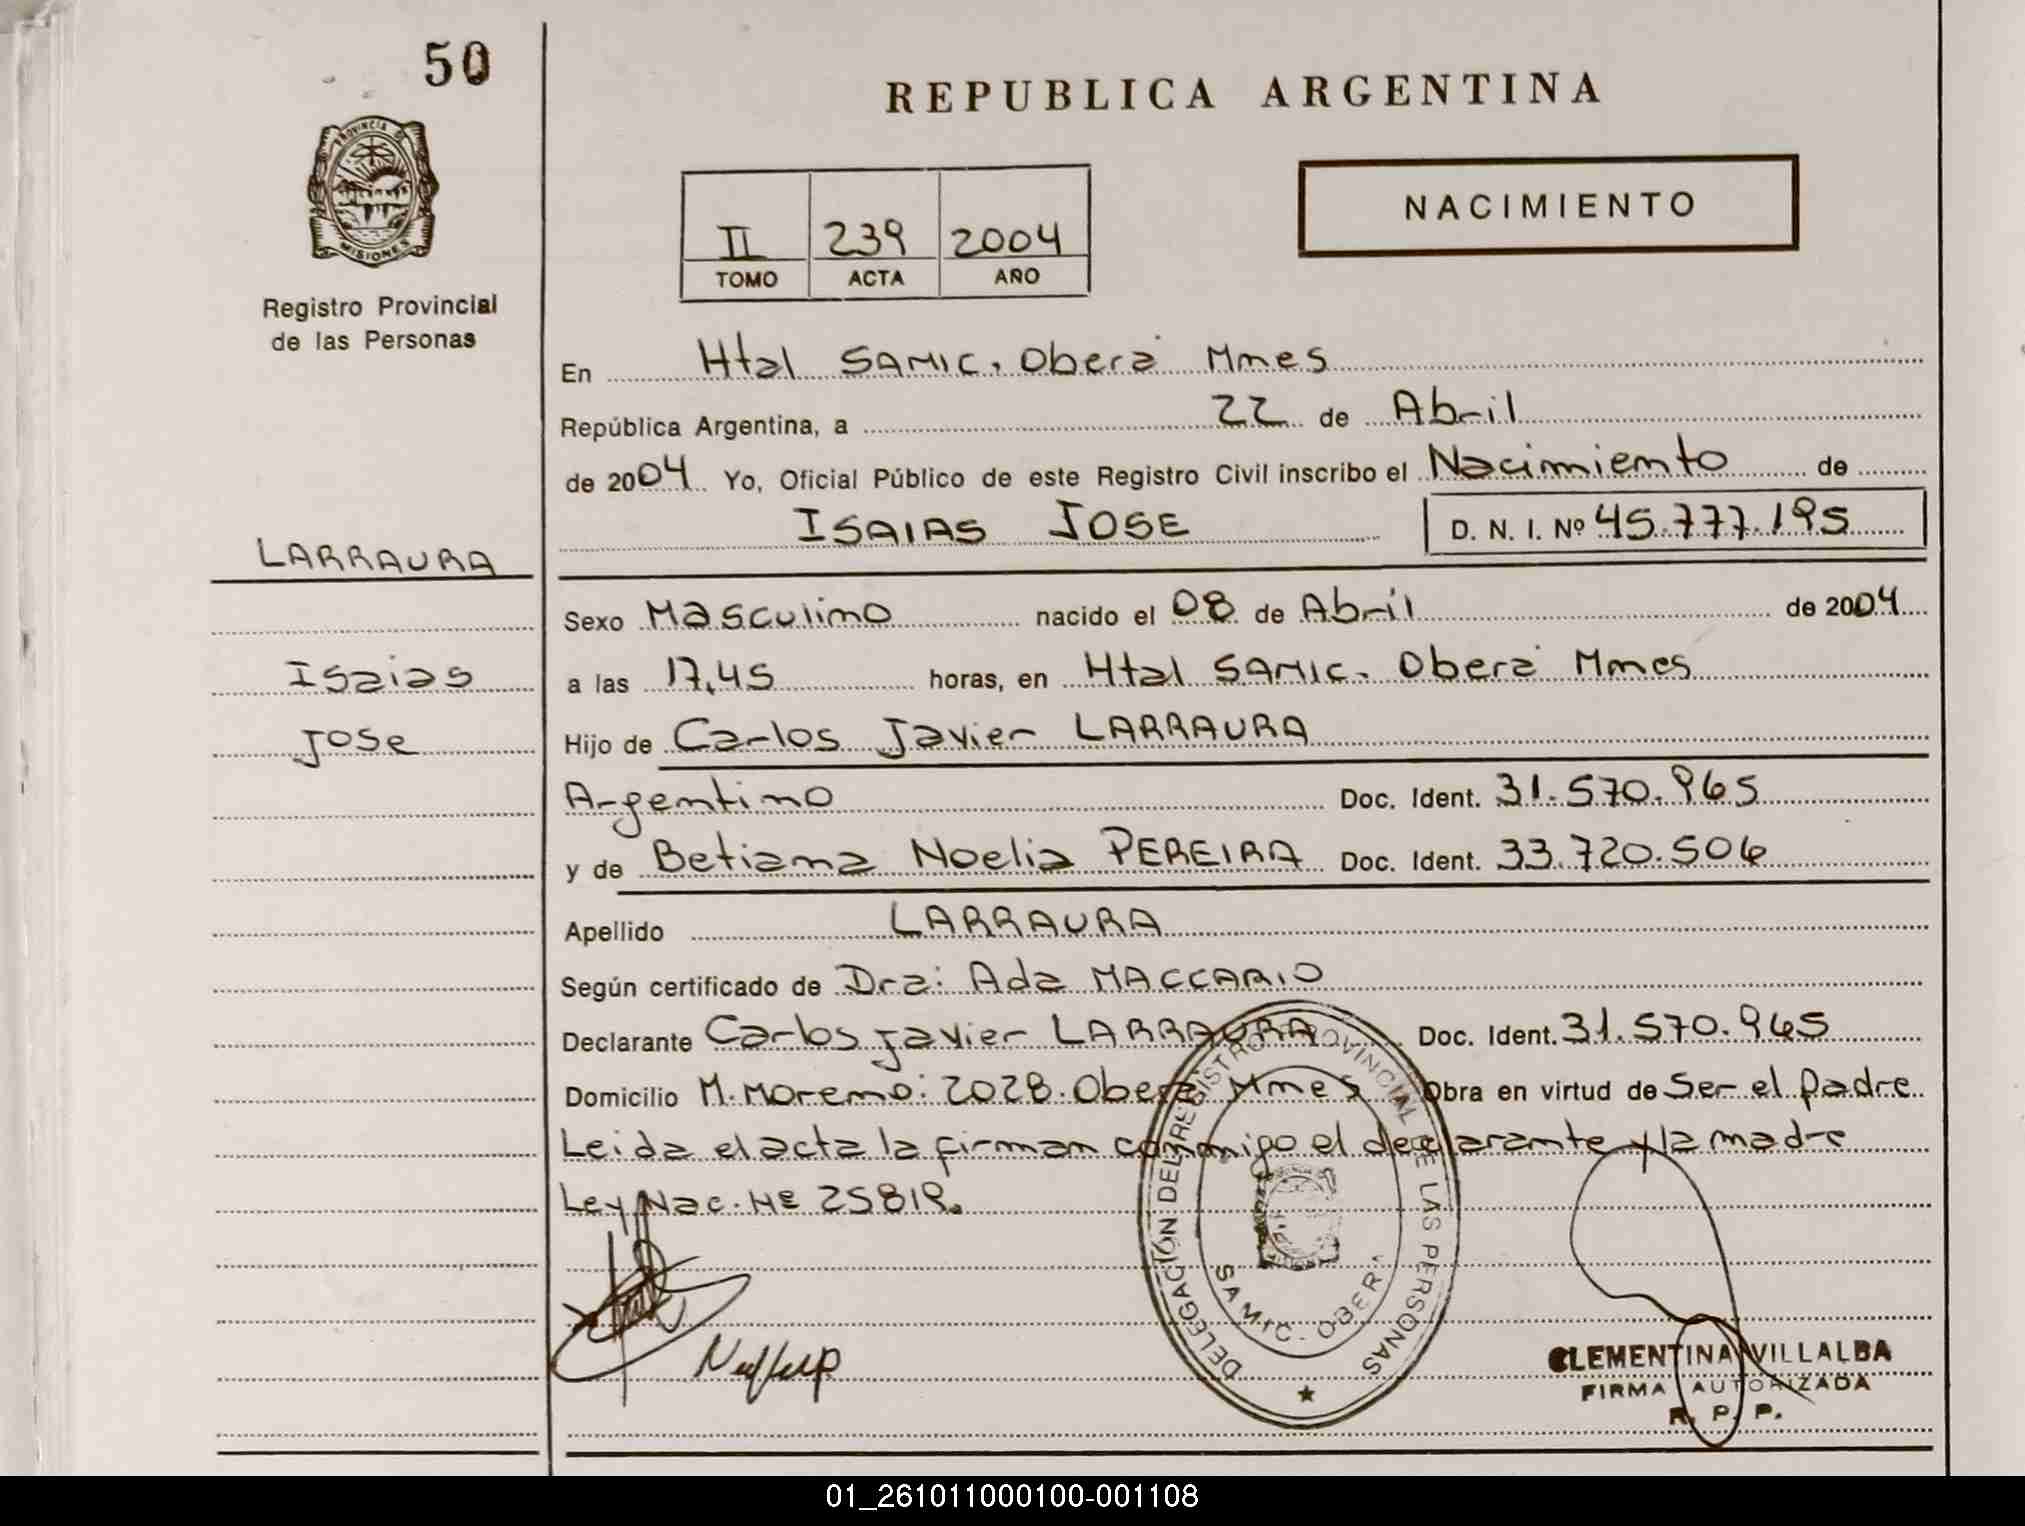 50
REPUBLICA ARGENTINA
PROVINCIA DE
MISIONES
Registro Provincial
de las Personas
NACIMIENTO
II 239 2004
TOMO ACTA AÑO
En Htal SAMIC. Oberá Mnes
República Argentina, a 22 de Abril
de 2004 Yo, Oficial Público de este Registro Civil inscribo el Nacimiento de
ISAIAS JOSE D. N. I. Nº 45.777.195
LARRAURA
Isaias
Jose
Sexo Masculino nacido el 08 de Abril de 2004
a las 17,45 horas, en Htal SAMIC. Oberá Mnes
Hijo de Carlos Javier LARRAURA
Argentino Doc. Ident. 31.570.965
y de Betiana Noelia PEREIRA Doc. Ident. 33.720.506
Apellido LARRAURA
Según certificado de Dra: Ada MACCARIO
Declarante Carlos Javier LARRAURA Doc. Ident. 31.570.965
Domicilio M. Moreno: 2028. Oberá Mnes Obra en virtud de Ser el padre
Leida el acta la firman conmigo el declarante y la madre
Ley Nac. Nº 25819.
DELEGACIÓN DEL REGISTRO PROVINCIAL DE LAS PERSONAS
SAMIC - OBER
CLEMENTINA VILLALBA
FIRMA AUTORIZADA
R. P. P.
01_261011000100-001108